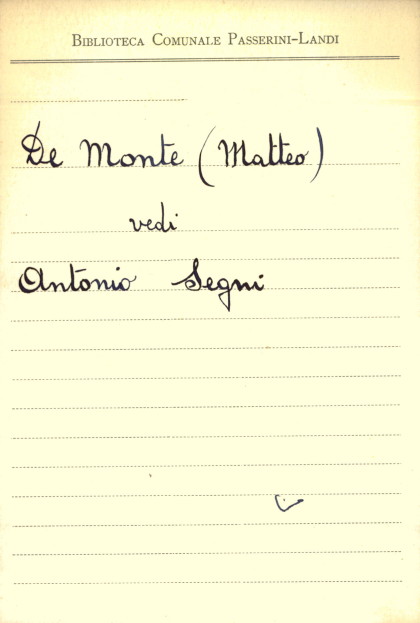 Biblioteca Comunale Passerini-Landi
De Monte (Matteo)
vedi
Antonio Segni